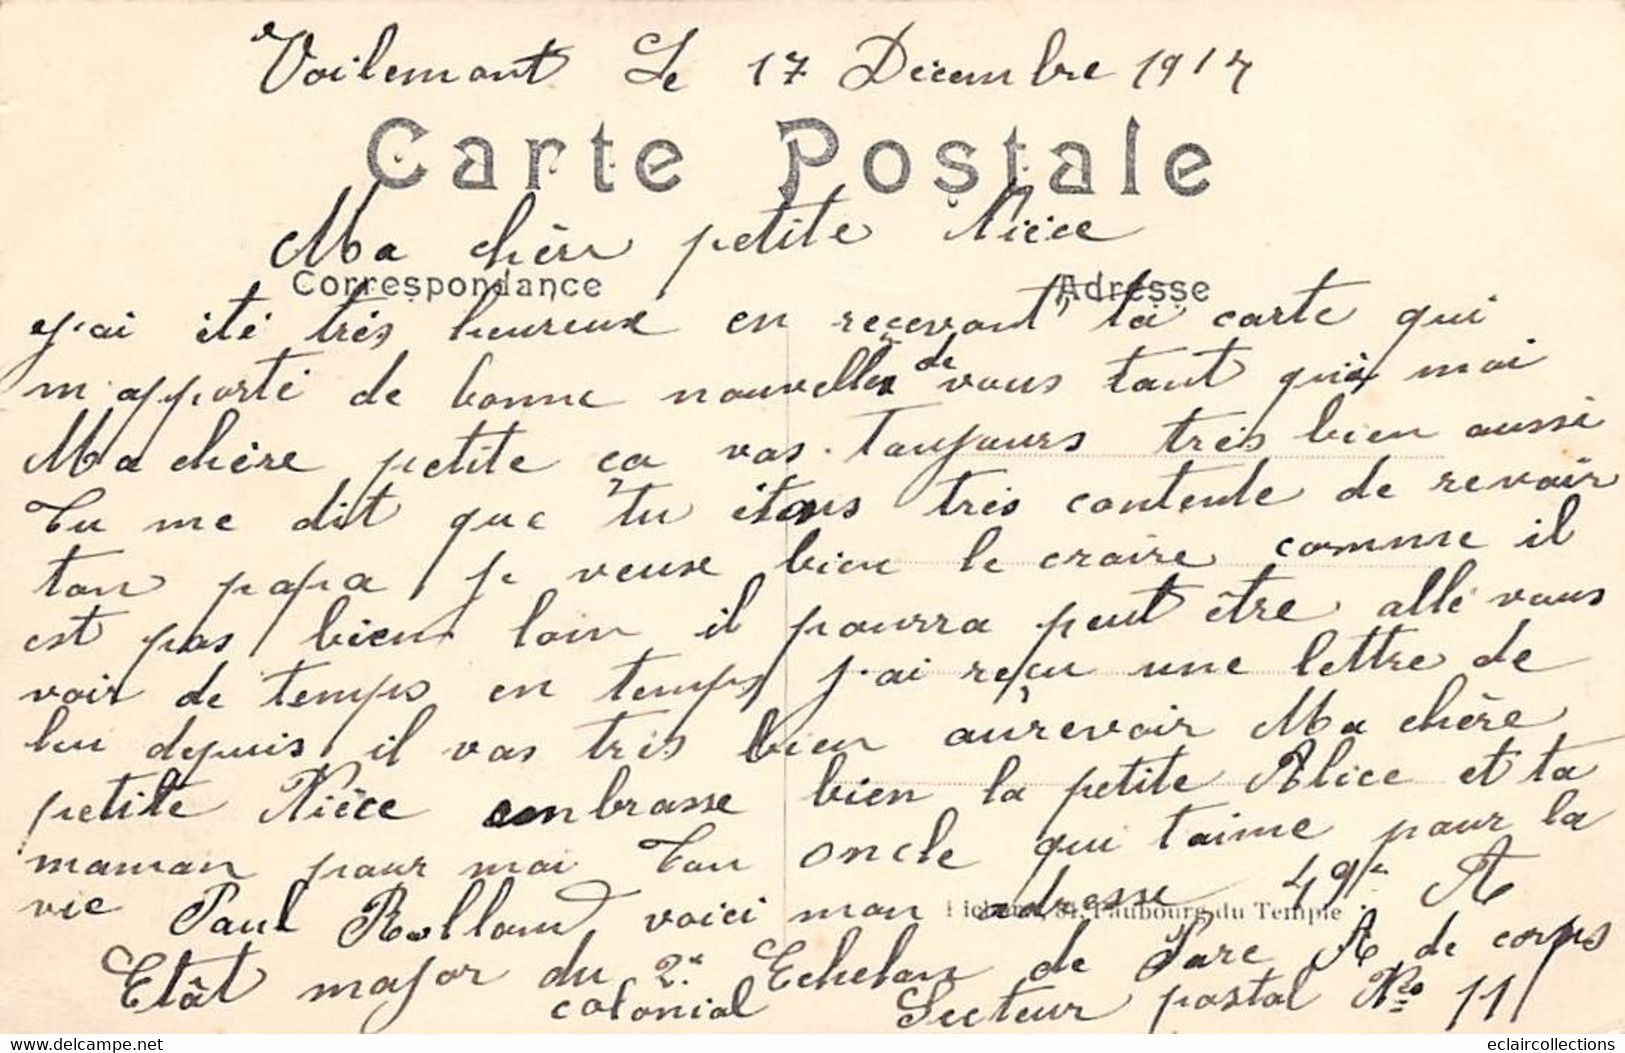 Voilemont Le 17 Décembre 1914
Carte Postale
Ma chère petite Nièce
Correspondance Adresse
j'ai été très heureux en recevant ta carte qui
m'apporté de bonne nouvelles de vous tant qu'à moi
Ma chère petite ça vas toujours très bien aussi
Tu me dit que tu étais très contente de revoir
ton papa je veux bien le croire comme il
est pas bien loin il pourra peut être allé vous
voir de temps en temps j'ai reçu une lettre de
leu depuis il vas très bien aurevoir Ma chère
petite Nièce embrasse bien la petite Alice et ta
maman pour moi Ton oncle qui t'aime pour la
vie Paul Rolland voici mon adresse 49e A
Faubourg du Temple
Etât major du 2e Echelon de Parc A de corps
colonial Secteur postal No 11
eclaircollections